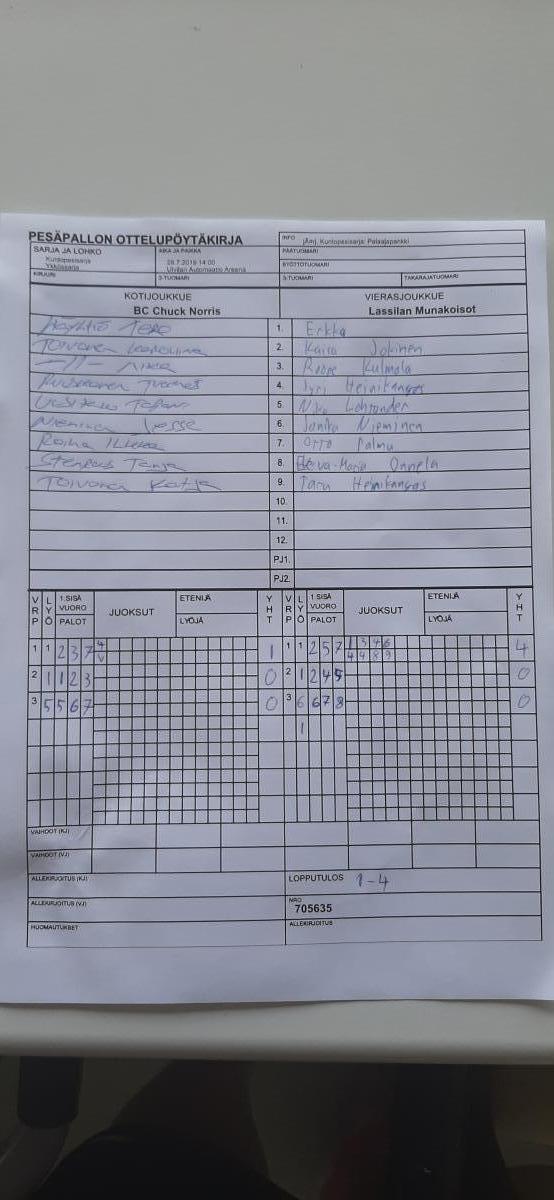 PESÄPALLON OTTELUPÖYTÄKIRJA
INFO (Am). Kuntopesissarja: Pelaajapankki
SARJA JA LOHKO AIKA JA PAIKKA PÄÄTUOMARI
Kuntopesissarja 28.7.2019 14:00
Ykkössarja Ulvilan Automaatio Areena SYÖTTÖTUOMARI
KIRJURI 3-TUOMARI 2-TUOMARI TAKARAJATUOMARI
KOTIJOUKKUE VIERASJOUKKUE
BC Chuck Norris Lassilan Munakoisot
Tero 1. Erkka
Toivonen 2. Kaisa Jokinen
-11- 3. Roope Kulmala
Tuomas 4. Jyri Heinikangas
5. Niko
Nieminen Jesse 6. Janita Nieminen
Roiha Ilkka 7. Otto Palmu
Stenroos Tanja 8. Eeva-Maria Onnela
Toivonen Katja 9. Taru Heinikangas
10.
11.
12.
PJ1.
PJ2.
VRP LYÖ 1.SISÄ VUORO PALOT JUOKSUT ETENIJÄ LYÖJÄ YHT VRP LYÖ 1.SISÄ VUORO PALOT JUOKSUT ETENIJÄ LYÖJÄ YHT
1 1 2 3 7 1 1 1 2 5 7 1 3 4 6 4
4 4 8 9
2 1 1 2 3 0 2 1 2 4 5 0
3 5 5 6 7 0 3 6 6 7 8 0
1
VAIHDOT (KJ)
VAIHDOT (VJ)
ALLEKIRJOITUS (KJ) LOPPUTULOS 1-4
ALLEKIRJOITUS (VJ) NRO
705635
HUOMAUTUKSET ALLEKIRJOITUS